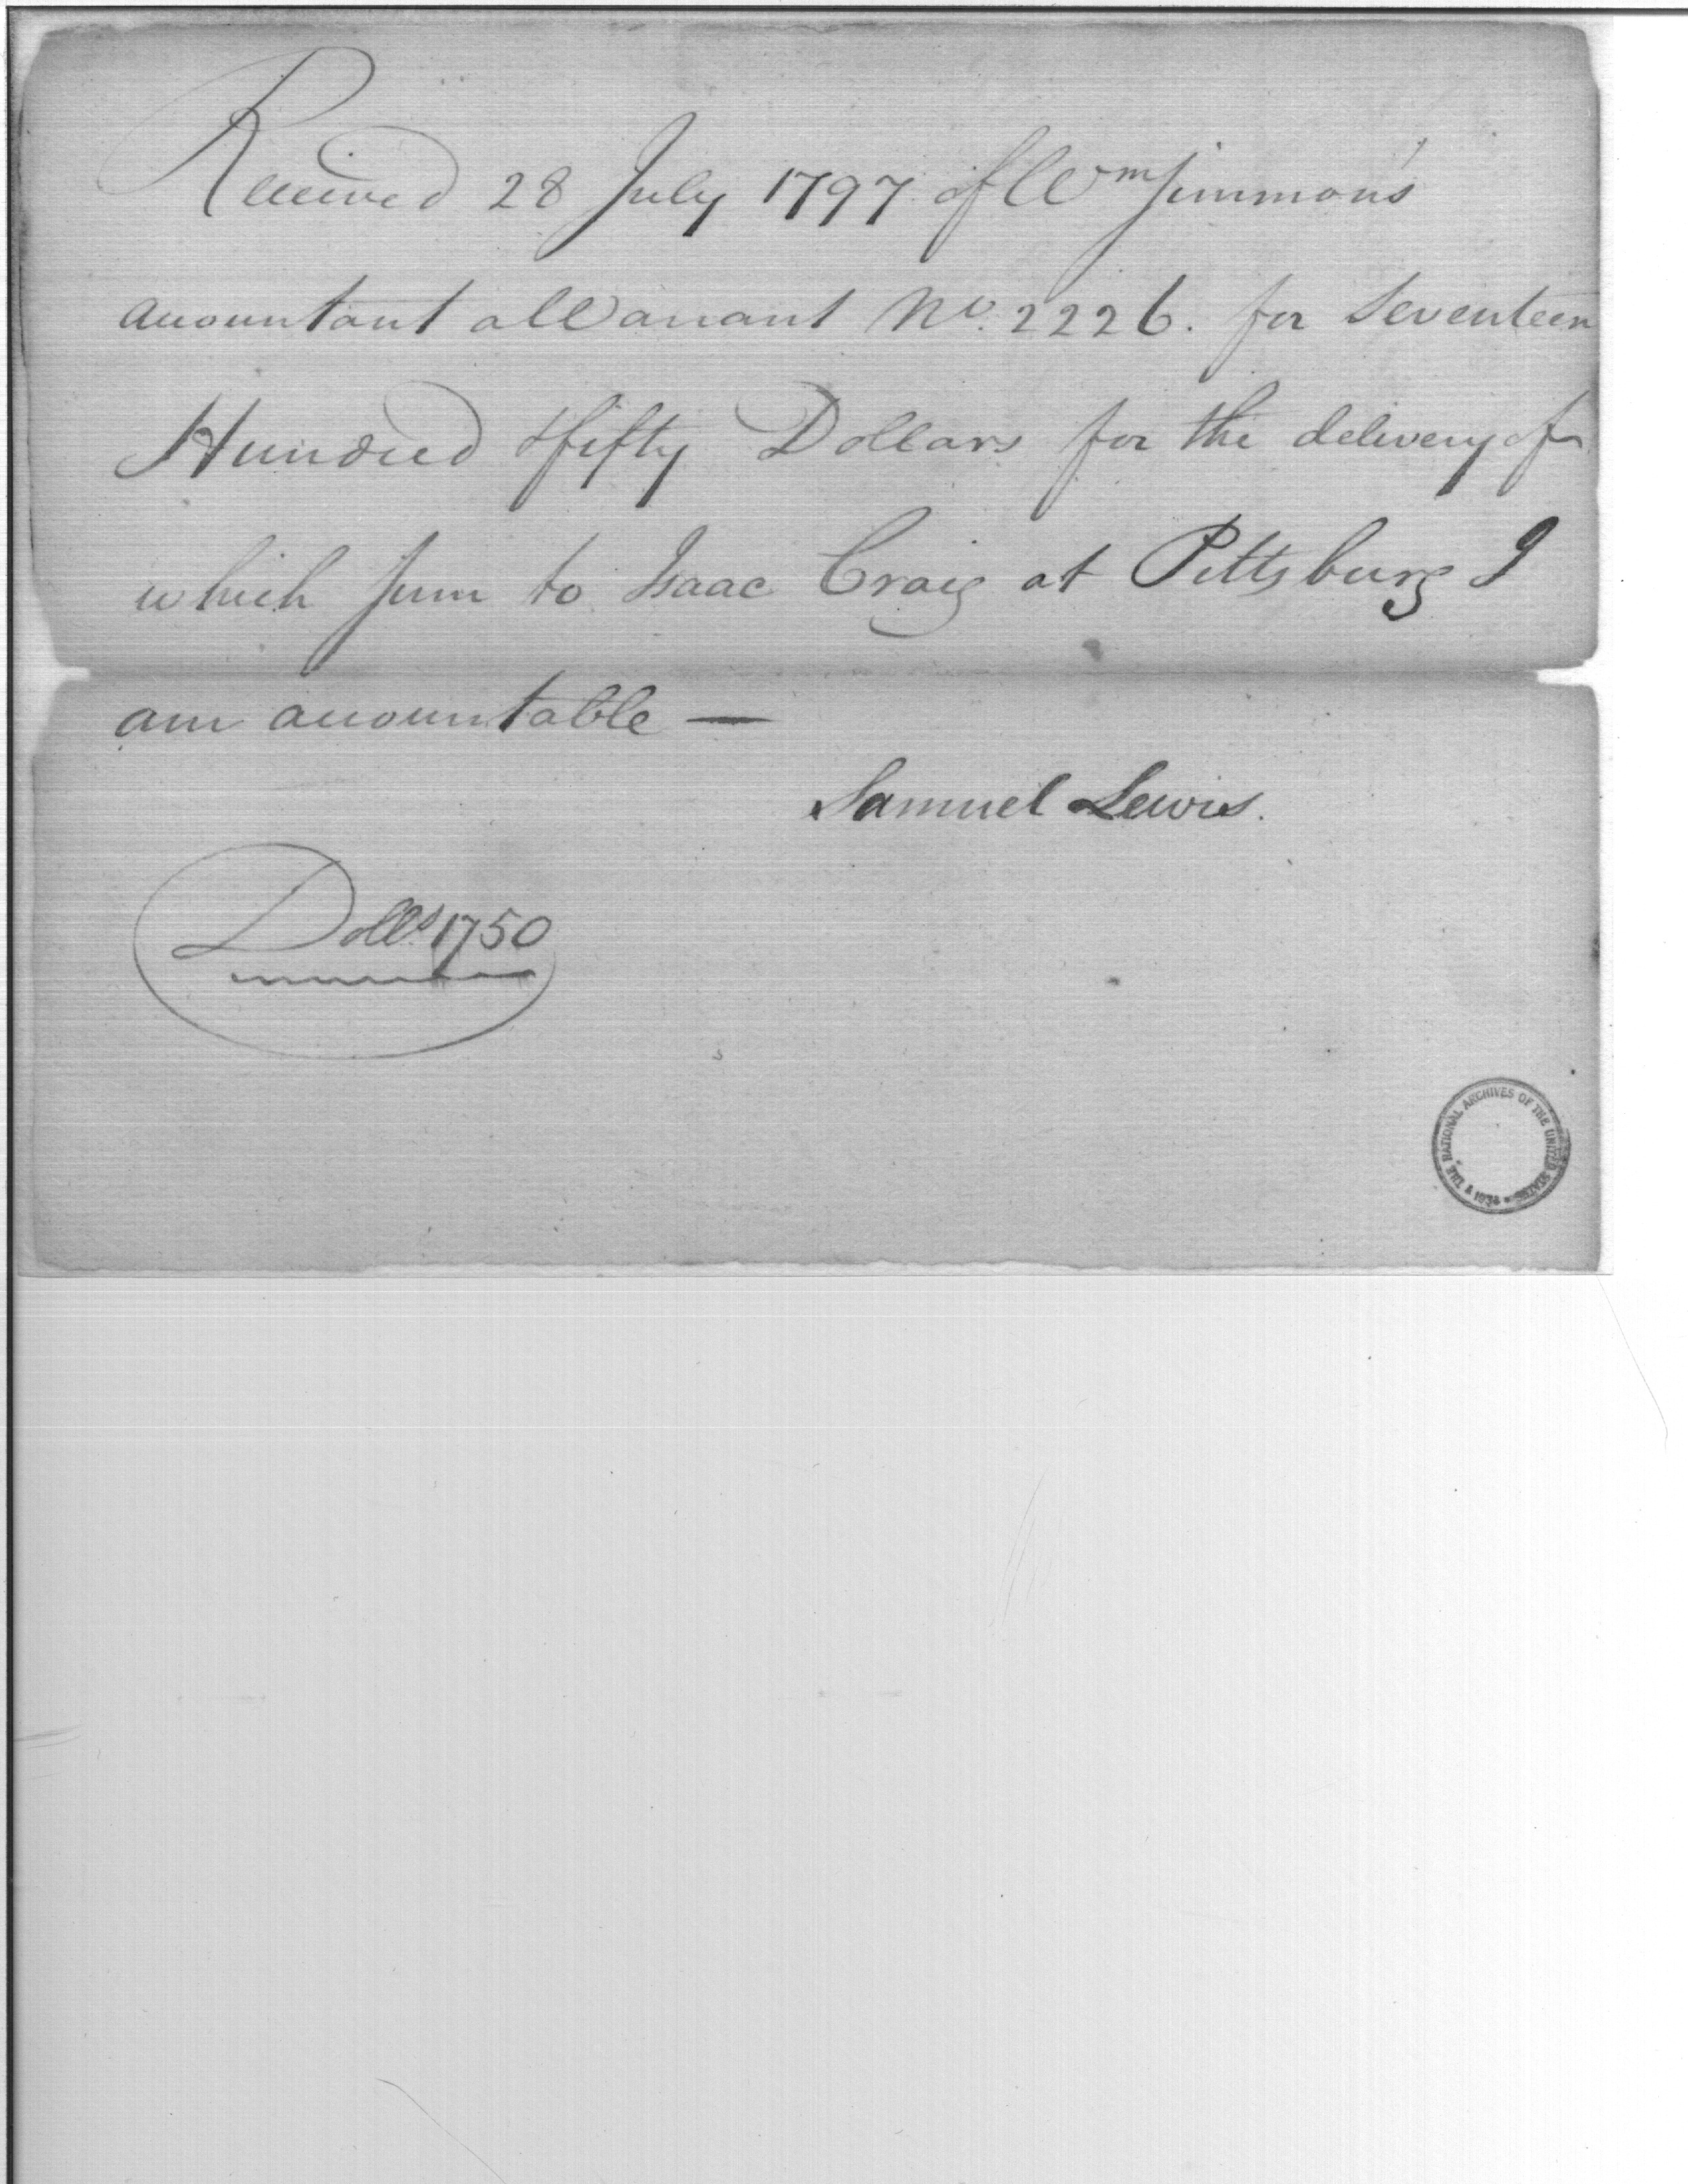 Received 28 July 1797 of Wm Simmons
accountant a Warrant No. 2226. for Seventeen
Hundred & fifty Dollars for the delivery of
which Sum to Isaac Craig at Pittsburg I
am accountable —
Samuel Lewis.
Dolls. 1750
THE NATIONAL ARCHIVES OF THE UNITED STATES 1934